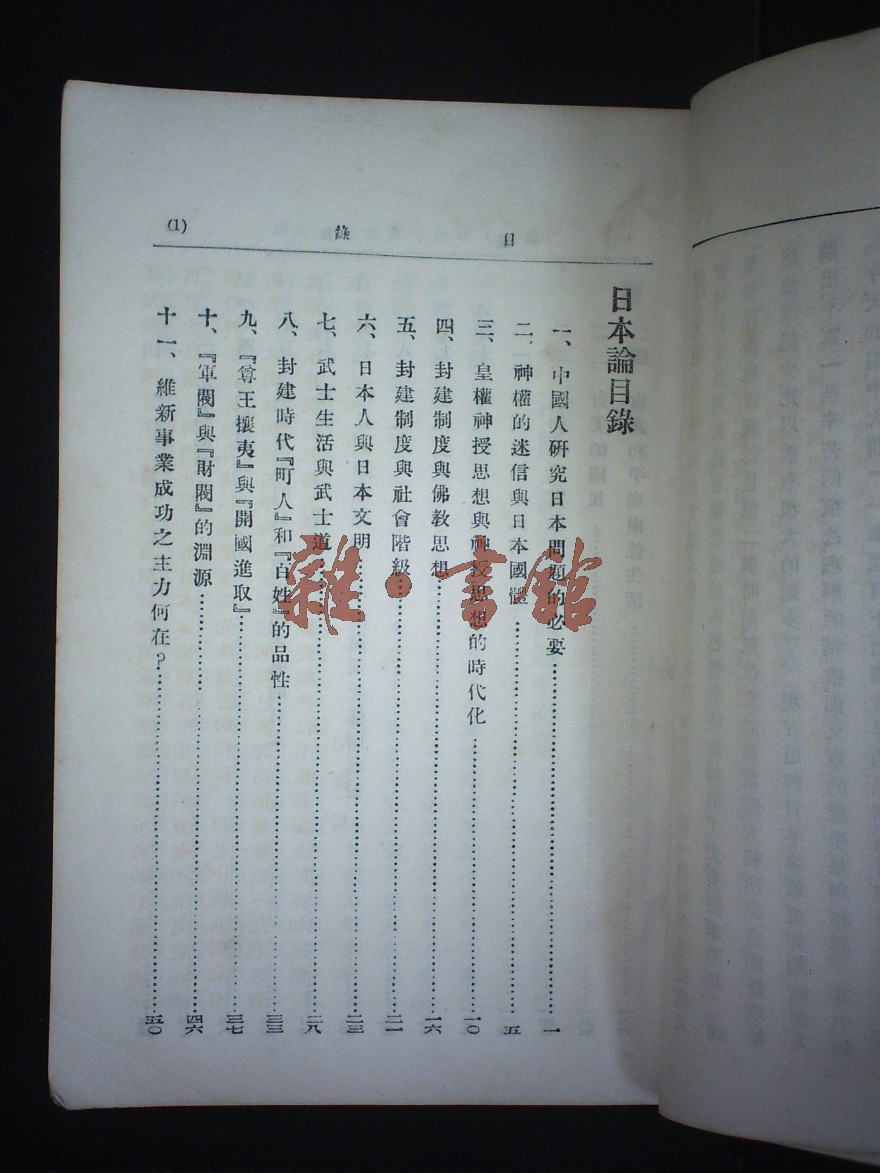 目錄 (1)
日本論目錄
一、中國人研究日本問題的必要……一
二、神權的迷信與日本國體……五
三、皇權神授思想與神授思想的時代化……一〇
四、封建制度與佛教思想……一六
五、封建制度與社會階級……二一
六、日本人與日本文明……二三
七、武士生活與武士道……二八
八、封建時代『町人』和『百姓』的品性……三三
九、『尊王攘夷』與『開國進取』……三七
十、『軍閥』與『財閥』的淵源……四六
十一、維新事業成功之主力何在?……五〇
雜·書館